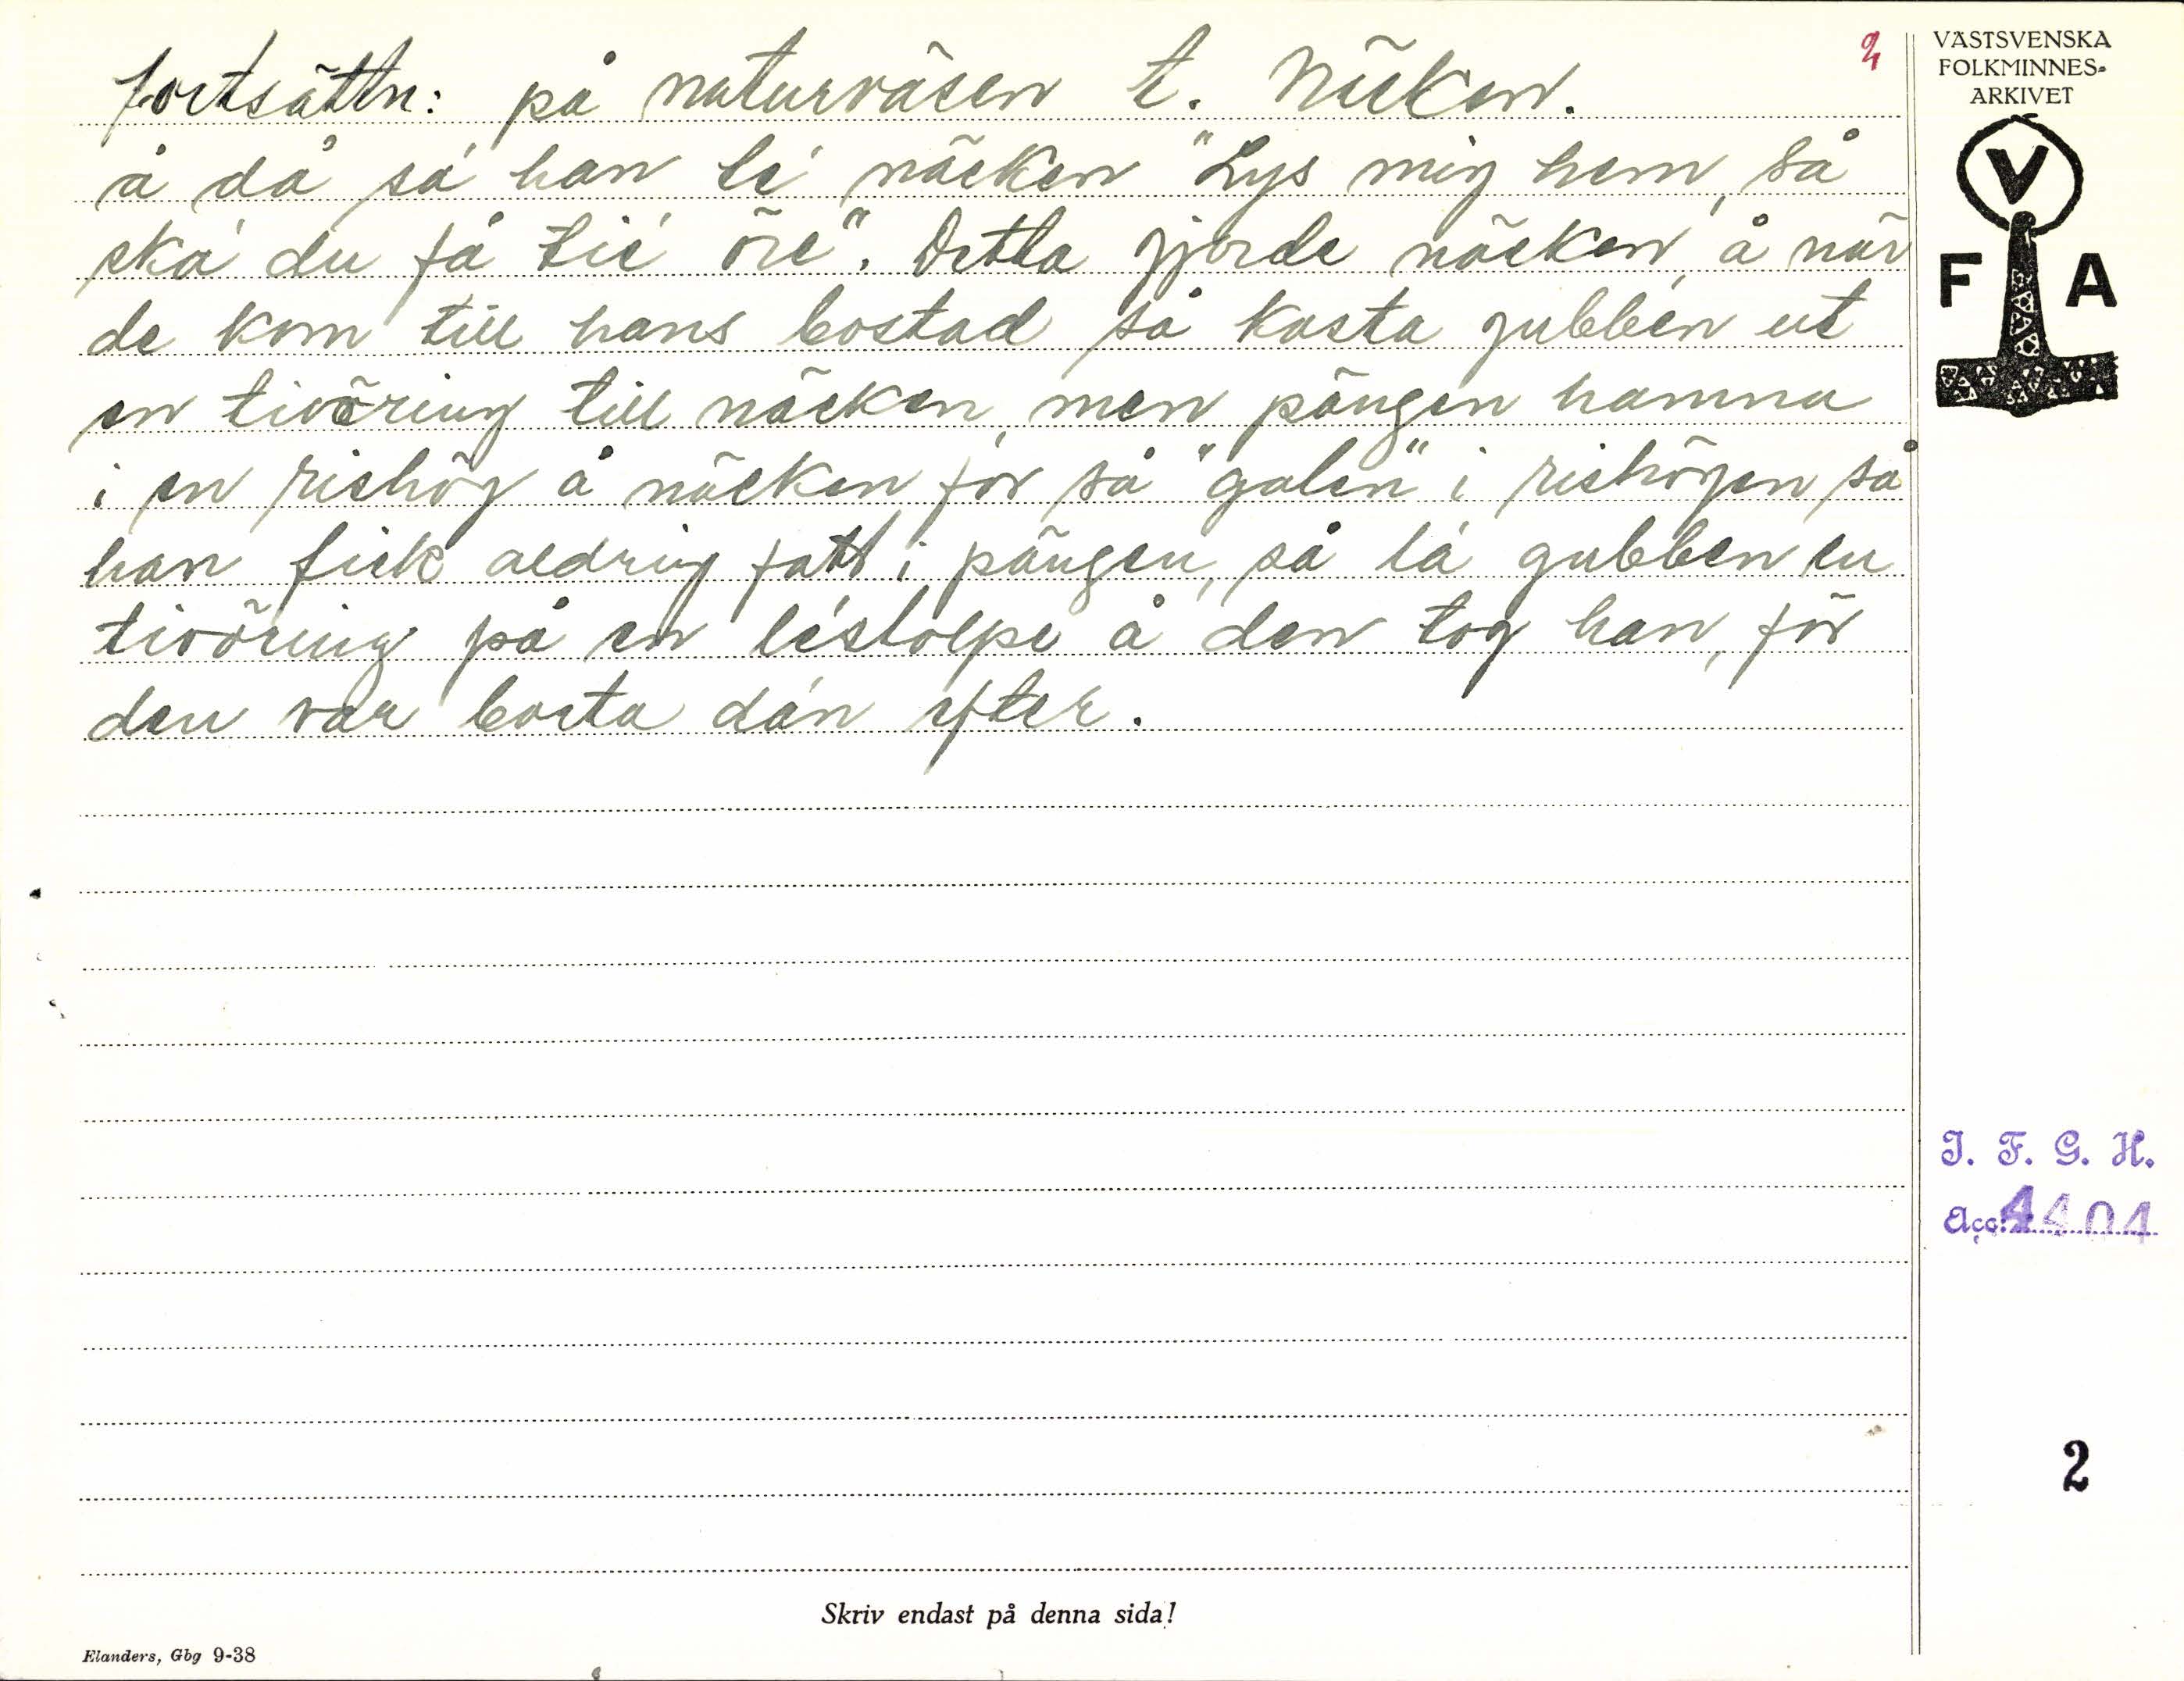 fortsättn: på naturväsen t. Näcken.
å då sá han té näcken "Lys mig hem, så
ská du få tié öre". Detta gjorde näcken, å när
de kom till hans bostad så kasta gubben ut
en tivöring till näcken, men pängen hamna
i en rishög å näcken för så "galen" i rishögen så
han fick aldrig fatt i pängen, så lá gubben en
tivöring på en léstolpe å den tog han, för
den var borta dán efter.
2
VÄSTSVENSKA
FOLKMINNES-
ARKIVET
V
F A
I. F. G. H.
Acc: 4404
2
Skriv endast på denna sida!
Elanders, Gbg 9-38